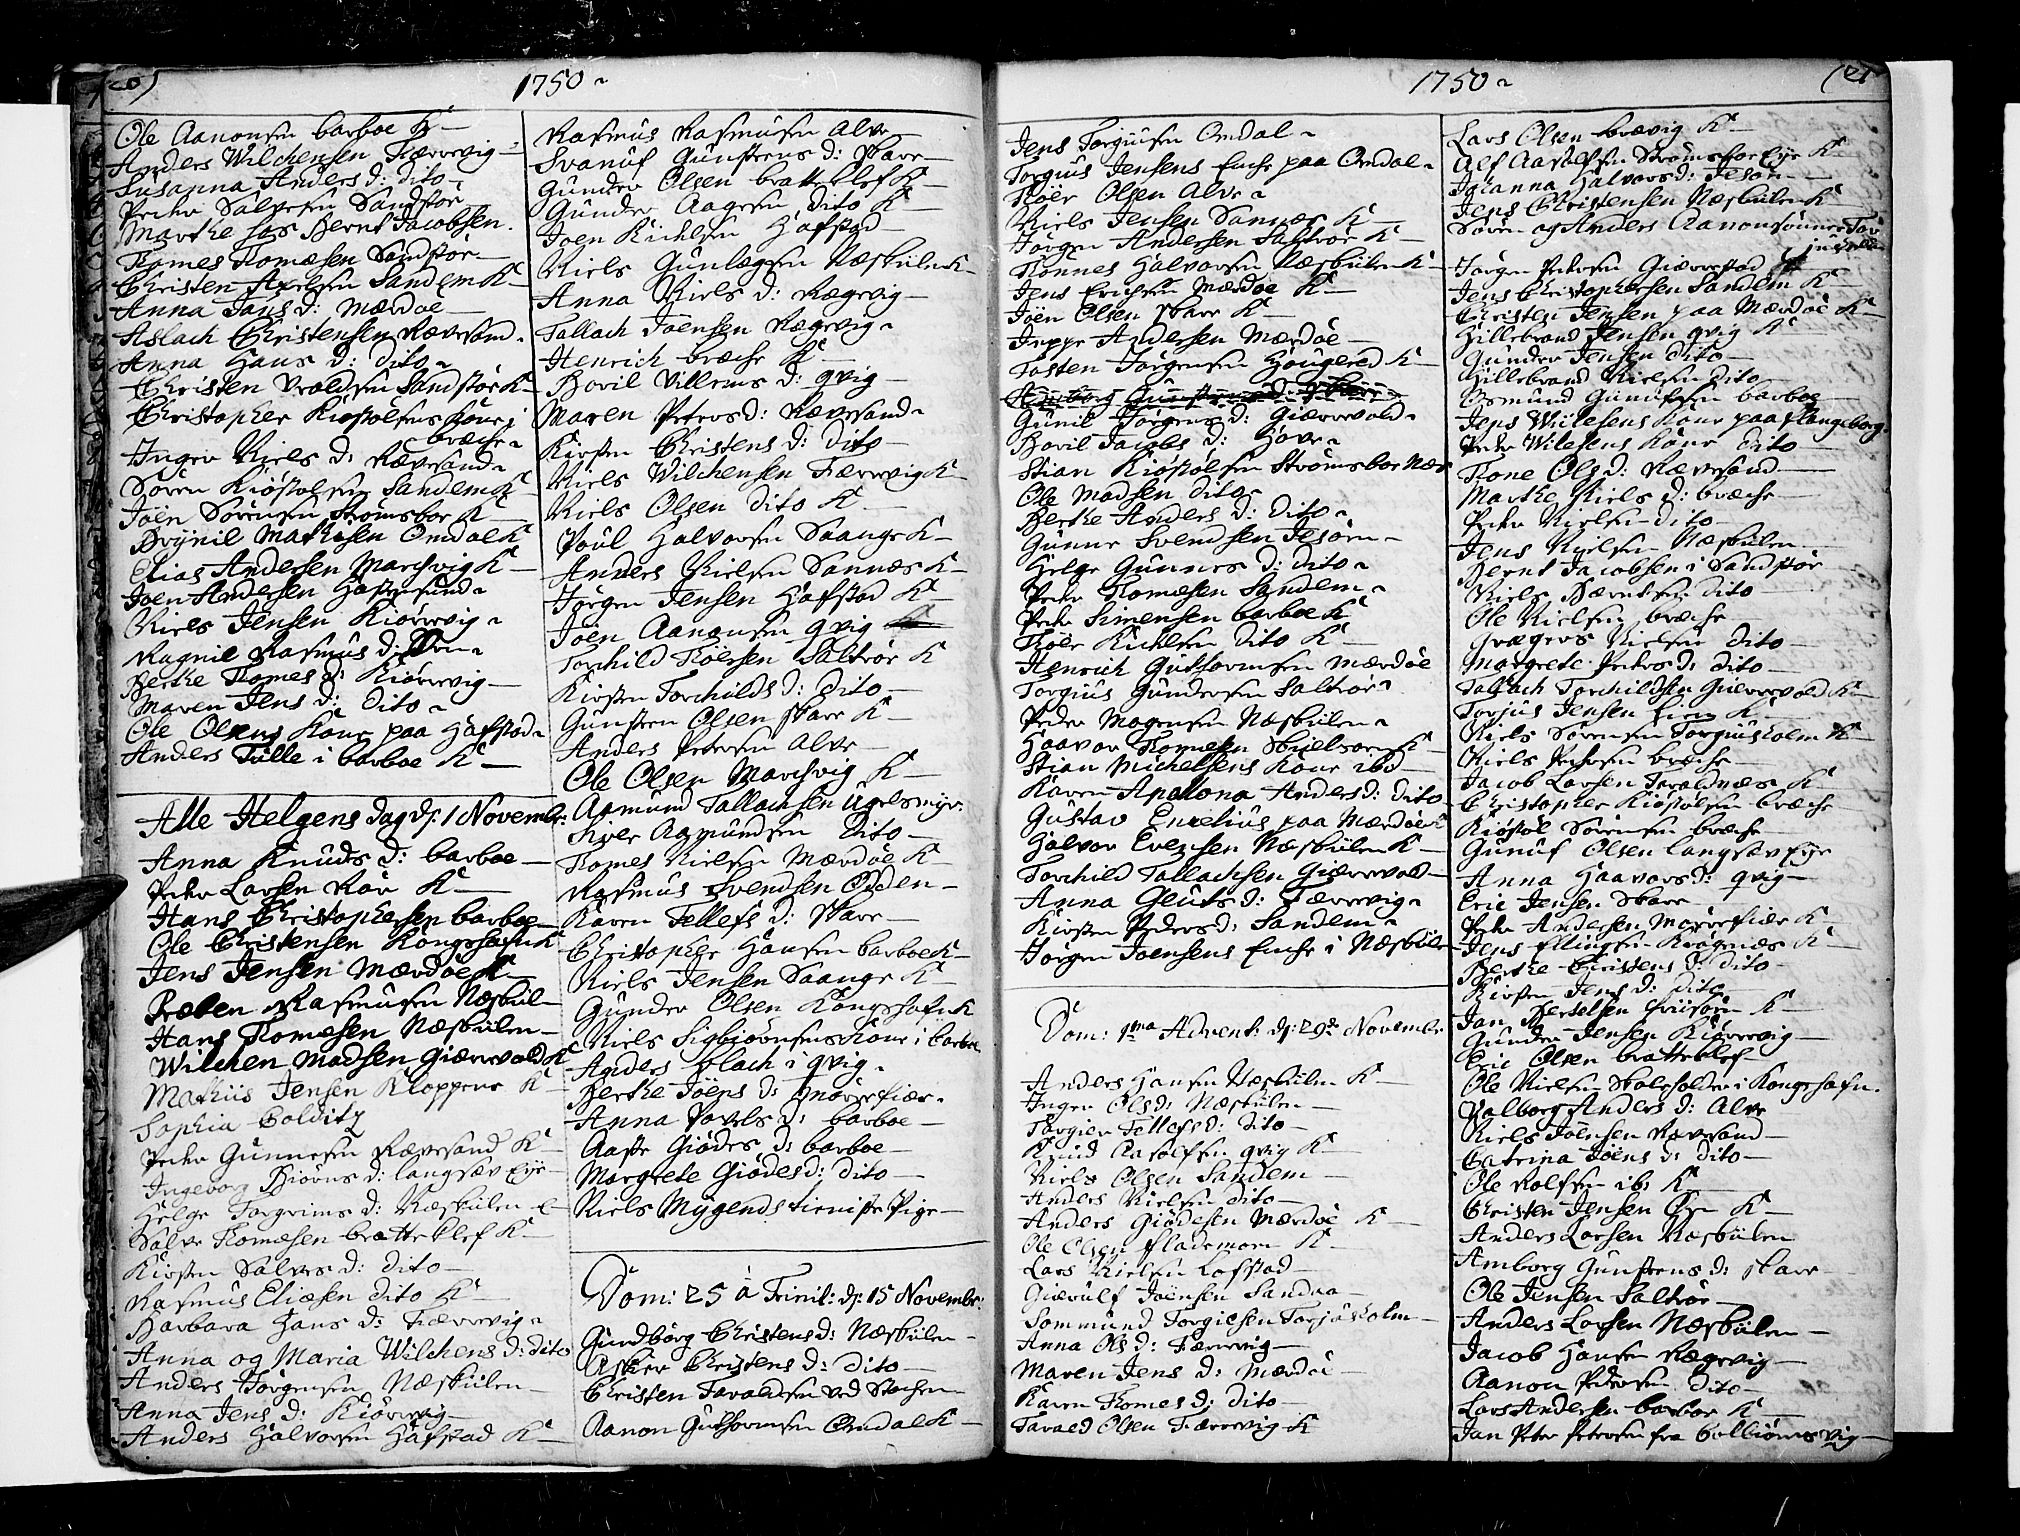 20)
1750
Ole Aanonsen barboe K
Anders Wilchensen Færrevig
Susanna Anders d: dito
Peder Salvesen Sandstør
Marthe hos Bernt Jacobsen.
Thomes Thomæsen Sandstør
Christen Axelsen Sandem K
Anna Jans d: Mærdøe
Aslach Christensen Rævesand
Anna Hans d: Dito
Christen Vraldsen Sandstør K
Christopher Kiøstolsens Kone i
bræche
Inger Niels d: Rævesand
Søren Kiøstolsen Sandem K
Joen Sørensen Strømsboe K
Brynil Mathisen Omdal K
Elias Andersen Marchvig K
Joen Andersen Hastensund
Niels Jensen Kiørrevig
Ragnil Rasmus d:
Berthe Thomes d: Kiørrevig
Maren Jens d: Dito
Ole Olsens Kone paa Hafstad
Anders Tulle i barboe K
Alle Helgens dag d: 1 Novembr:
Anna Knuds d: barboe
Peder Larsen Rør K
Hans Christophersen barboe
Ole Christensen Kongshafn K
Jens Jensen Mærdøe K
Preben Rasmusen Næskiil
Hans Thomæsen Næskiilen
Wilchen Madsen Giærrevold K
Mathiis Jensen Kloppene K
Sophia Colditz
Peder Gunnesen Rævesand K
Ingeborg Biørns d: langsæv Eye
Helge Torgrims d: Næskiilen
Salve Thomæsen bratteklef K
Kirsten Salves d: dito
Rasmus Eliæsen dito K
Barbara Hans d: Færrevig
Anna og Maria Wilchens d: dito
Anders Jørgensen Næskiilen
Anna Jens d: Kiørrevig
Anders Halvorsen Hafstad K
Rasmus Rasmusen Alve
Svanuf Gunstens d: Skare
Gunder Olsen bratteklef K
Gunder Aagesen Dito K
Joen Kichelsen Hafstad
Niels Gunlægsen Næskiilen K
Anna Niels d: Rægevig
Tallach Joensen Rægevig
Henrich bræche K
Boril Villems d: qvig
Maren Peters d: Rævesand
Kirsten Christens d: Dito
Niels Wilchensen Færrevig K
Niels Olsen Dito K
Poul Halvorsen Saange K
Anders Nielsen Sannæs K
Jørgen Jensen Hafstad K
Joen Aanonsen qvig
Torchild Thoersen Saltrør K
Kirsten Torchilds d: Dito
Gunsten Olsen Skare K
Anders Petersen Alve
Ole Olsen Marchvig K
Aasmund Tallachsen Ugelsmyr
Siver Aasmundsen Dito
Thomes Nielsen Mærdøe K
Rasmus Svendsen Odden
Karen Tellefs d: Skare
Christopher Hansen barboe K
Niels Jensen Saange K
Gunder Olsen Kongshafn K
Niels Sigbiørnsens Kone i barboe
Anders blach i qvig
Berthe Joens d: Mørrefiær
Anna Povels d: barboe
Aaste Giødes d: barboe
Margrete Giødes d: Dito
Niels Mygends tieniste Pige
Dom: 25 à Trinit: d: 15 Novembr:
Gundborg Christens d: Næskiilen
Christens d: Dito
Christen Taraldsen ved Stachen
Aanon Guthormsen Omdal K
1750
(21
Jens Torgiusen Omdal
Torgius Jensens Enche paa Omdal
Thoer Olsen Alve
Niels Jensen Sannæs K
Jørgen Andersen Saltrør K
Thønnes Halvorsen Næskiilen K
Jens Erichsen Mærdøe K
Joen Olsen Skare K
Jeppe Andersen Mærdøe
Tosten Jørgensen Hougered K
Amborg Gunstens d: Skare
Gunil Jørgens d: Giærrevold
Boril Jacobs d: Hove
Stian Kiøstolsen Strømsboe Næs
Ole Madsen dito
Berthe Anders d: Dito
Gunne Svendsen Jesøen
Helge Gunnes d: Dito
Peder Thomæsen Sandem
Peder Simensen barboe K
Thoer Kichelsen Dito K
Henrich Guthormsen Mærdøe
Torgius Gundersen Saltrør
Peder Mogensen Næskiilen
Haavor Thomesen Skielsøen K
Stian Michelsens Kone ibd
Karen Apalona Anders d: Dito
Gustav Enelius paa Mærdøe
Halvor Evensen Næskiilen K
Torchild Tallachsen Giærrevold
Anna Gluts d: Færrevig
Kirsten Peders d: Sandem
Jørgen Joensens Enche i Næskiilen
Dom: 1ma Advent: d: 29de Novembr
Anders Hansen Næskiilen K
Inger Ols d: Næskiilen
Torgier Tellefs d: Dito
Knud Aasolfsen qvig K
Niels Olsen Sandem
Anders Nielsen Dito
Anders Giødesen Mærdøe K
Ole Olsen flademoen K
Lars Nielsen Lofstad
Giærulf Joensen Sandaa
Sommund Torgiesen Torjusholm
Anna Ols d: Færrevig
Maren Jens d: Mærdøe
Karen Thomes d: Dito
Tarald Olsen Færrevig K
Lars Olsen brævig K
Alf Aastolfsen Strømsboe Eye K
Johanna Halvors d: Jesøen
Jens Christensen Næskiilen K
Søren og Anders Aanonsønner Tor
jusholm
Jørgen Pedersen Giærrestad
Jens Christophersen Sandem K
Christen Jensen paa Mærdøe K
Hillebrand Jensen qvig K
Gunder Jensen Dito
Hillebrand Nielsen dito
Osmund Gunufsen barboe
Jens Wiilesens Kone paa flangeborg.
Peder Wilesens Kone Dito
Thone Ols d: Rævesand
Marthe Niels d: bræche
Peder Nielsen dito
Jens Nielsen Næskiilen
Bernt Jacobsen i Sandstør
Niels Berntsen Dito
Ole Nielsen bræche
Grægers Nielsen Dito
Margrete Peders d: dito
Tallach Torchildsen Giærrevold K
Torjus Jensen K
Niels Sørensen Torgiusholm K
Niels Pedersen bræche
Jacob Larsen Taraldnæs K
Christopher Kiøstolsen bræche
Kiøstol Sørensen bræche
Gunuf Olsen langsæv Eye
Anna Haavors d: qvig
Eric Jensen Skare
Peder Andersen Mørrefiær K
Jens Ellingsen Krøgenæs K
Berthe Christens d: dito
Kirsten Jens d: Dito
Jan Bertelsen friisøen K
Gunder Jensen Kiørrevig
Eric Olsen bratteklef
Ole Nielsen Skoleholder i Kongshafn.
Valborg Anders d: Alve
Niels Joensen Rævesand
Catrina Joens d: Dito
Ole Rolfsen ib: K
Christen Jensen K
Anders Larsen Næskiilen
Amborg Gunstens d: Skare
Ole Jensen Saltrør
Anders Larsen Næskiilen
Jacob Hansen Rægevig
Aanon Pedersen Dito
Lars Andersen barboe K
Jan Peter Petersen fra Colbiørnsvig